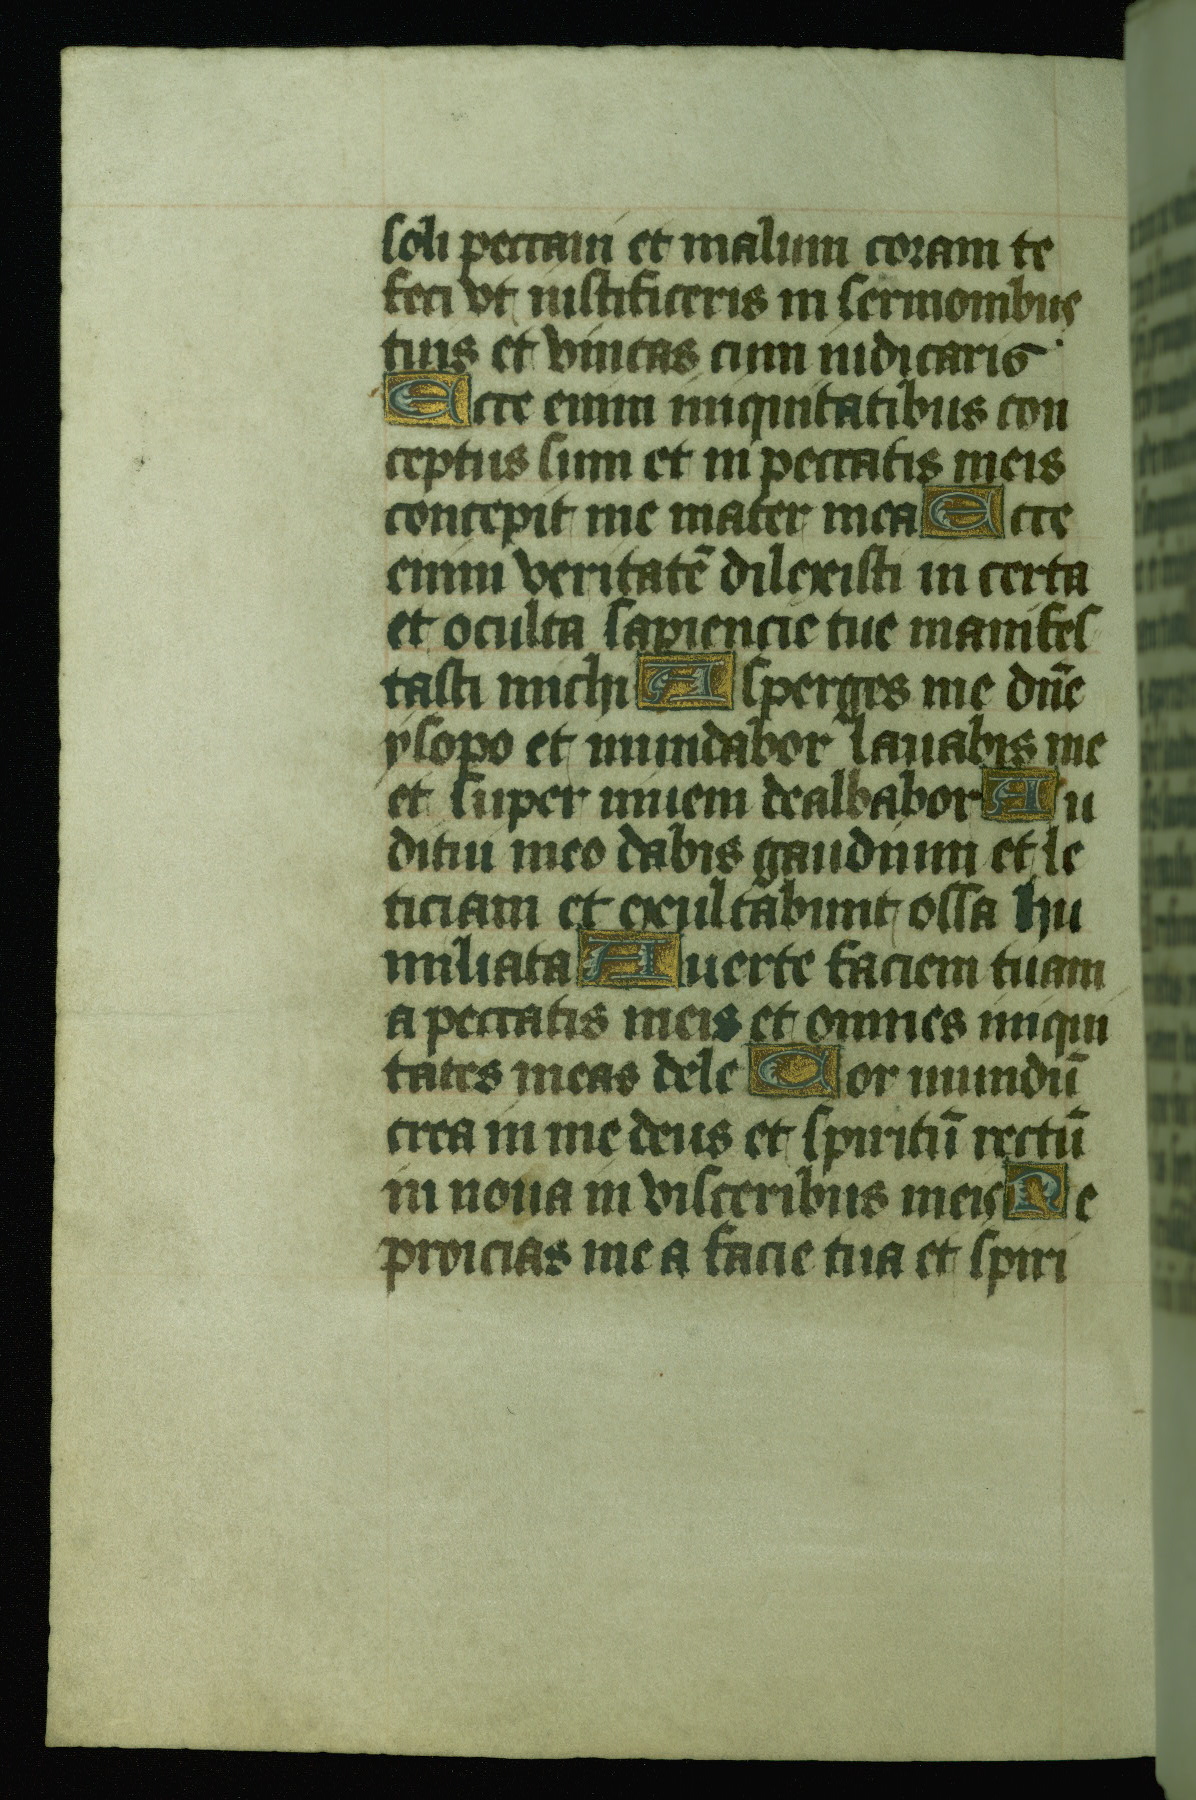 soli peccaui et malum coram te
feci vt iustificeris in sermonibus
tuis et vincas cum iudicaris
Ecce enim iniquitatibus con
ceptus sum et in peccatis meis
concepit me mater mea Ecce
enim veritatē dilexisti in certa
et oculta sapiencie tue manifes
tasti michi Asperges me dn̄e
ysopo et mundabor lauabis me
et super niuem dealbabor Au
ditui meo dabis gaudium et le
ticiam et exultabunt ossa hu
miliata Auerte faciem tuam
a peccatis meis et omnes iniqui
tates meas dele Cor mundū
crea in me deus et spiritū rectū
in noua in visceribus meis Ne
proicias me a facie tua et spiri